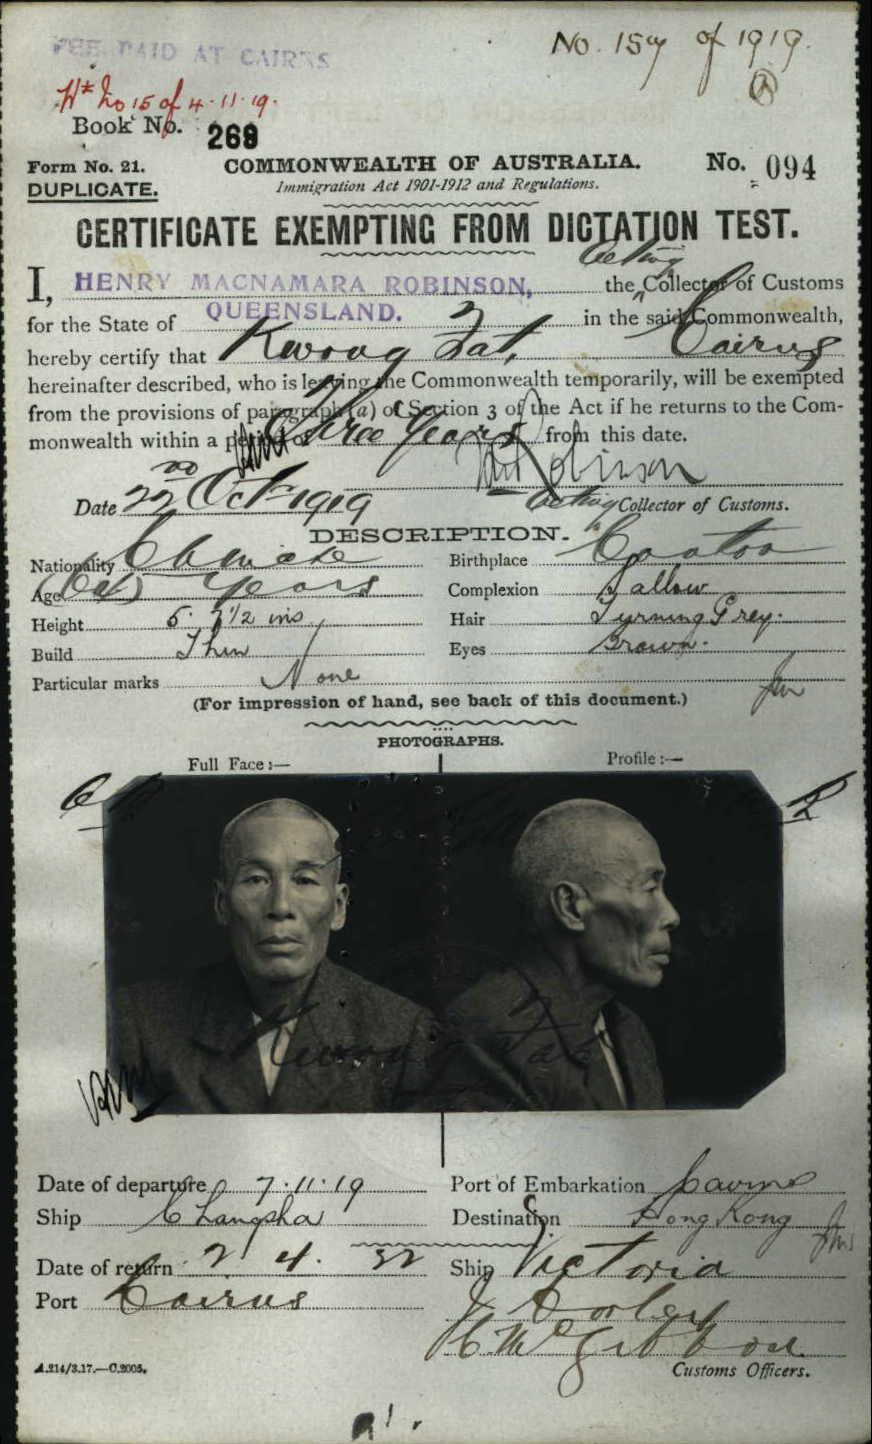 FEE PAID AT CAIRNS
No. 157 of 1919.
No 15 of 4.11.19.
Book No. 268
Form No. 21. COMMONWEALTH OF AUSTRALIA. No. 094
DUPLICATE. Immigration Act 1901-1912 and Regulations.
CERTIFICATE EXEMPTING FROM DICTATION TEST.
Acting
I, HENRY MACNAMARA ROBINSON, the Collector of Customs
for the State of QUEENSLAND. in the said Commonwealth,
hereby certify that Kwong Fat, Cairns
hereinafter described, who is leaving the Commonwealth temporarily, will be exempted
from the provisions of paragraph (a) of Section 3 of the Act if he returns to the Com-
monwealth within a period of Three Years from this date.
Robinson
Date 22nd Oct 1919 Acting Collector of Customs.
DESCRIPTION.
Nationality Chinese Birthplace Canton
Age years Complexion Sallow
Height 5. 7 1/2 ins Hair Turning Grey.
Build Thin Eyes Brown.
Particular marks None
(For impression of hand, see back of this document.)
PHOTOGRAPHS.
Full Face :— Profile :—
Kwong Fat
Date of departure 7.11.19 Port of Embarkation Cairns
Ship Changsha Destination Hong Kong
Date of return 2 4. 22 Ship Victoria
Port Cairns
Customs Officers.
A.214/3.17.—C.2005.